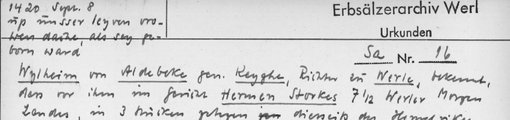 1420 Sept. 8
up unser leyven vro-
wen dache, als sey ge-
born ward
Erbsälzerarchiv Werl
Urkunden
Sa Nr. 16
Wylheim von Aldebeke gen. Keyghe, Richter zu Werle, bekennt,
dass vor ihm im Gericht Hermen Storkes 7 1/2 Werler Morgen
Landes, in 3 Stücken gelegen diesseits der